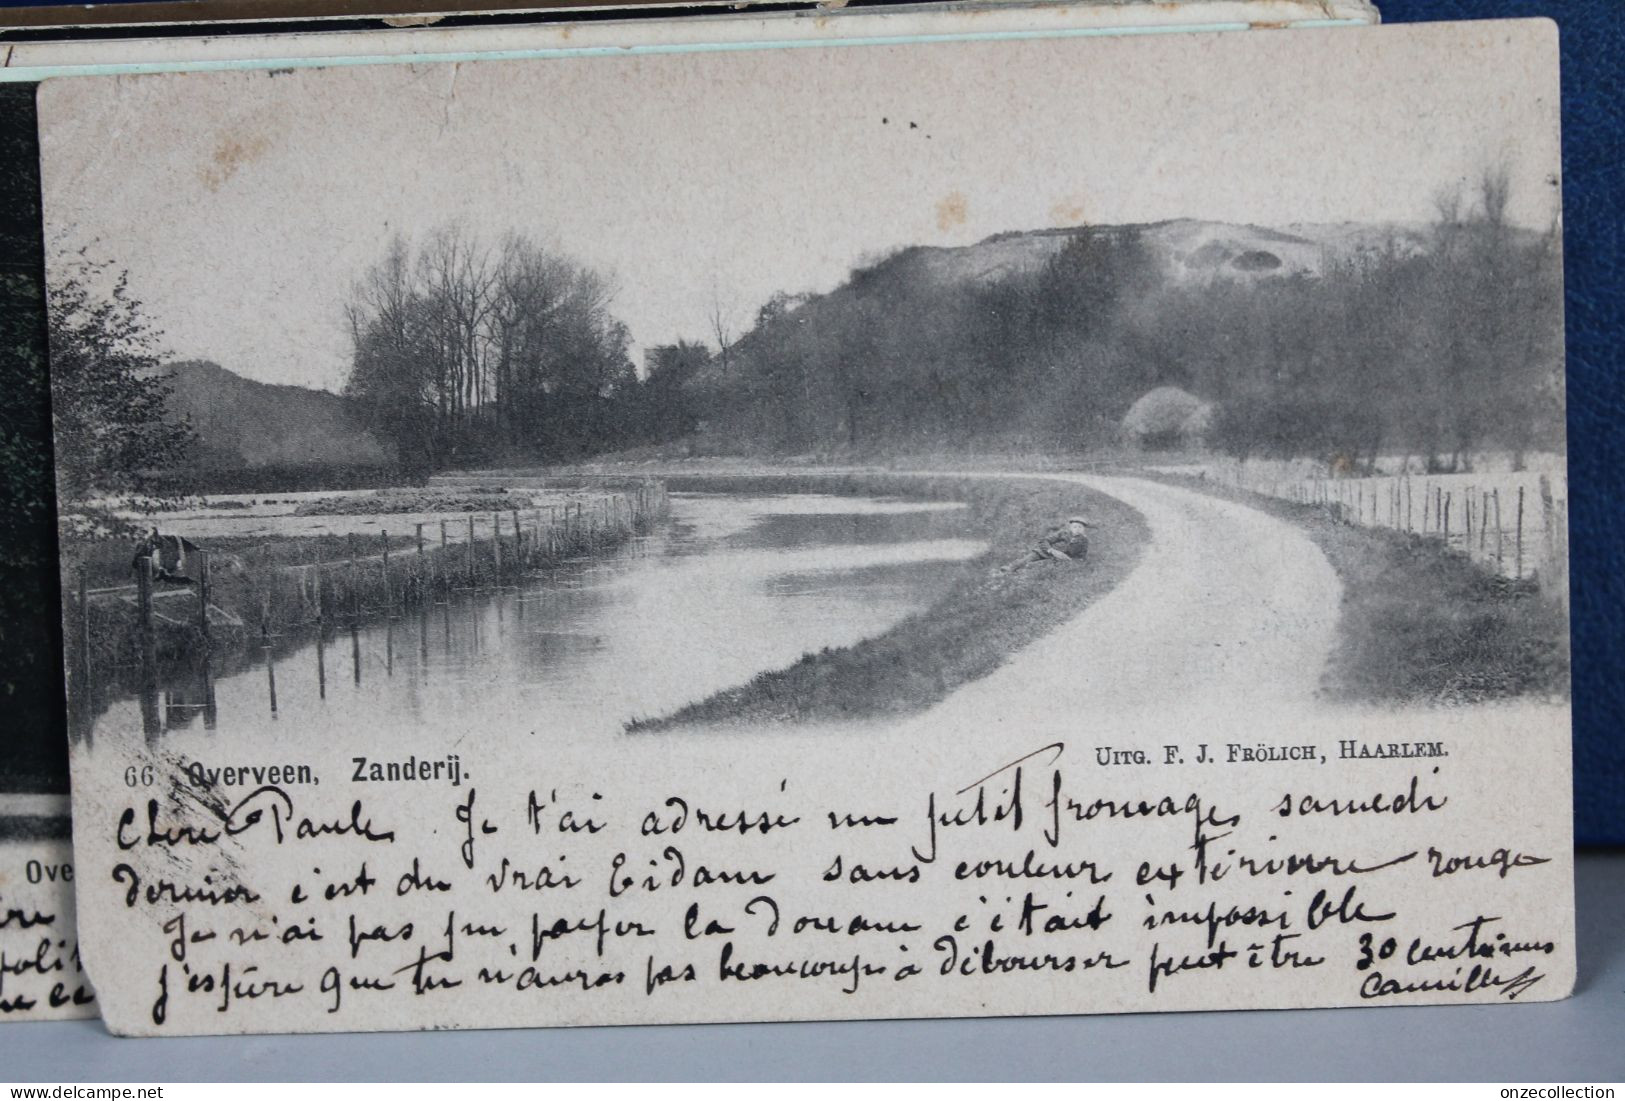 66 Overveen, Zanderij.
UITG. F. J. FRÖLICH, HAARLEM.
Chère Paule. Je t'ai adressé un petit fromage, samedi
dernier c'est du vrai Eidam sans couleur extérieure rouge
Je n'ai pas pu payer la Douane c'était impossible
j'espère que tu n'auras pas beaucoup à débourser peut être 30 centimes
Camille
Ove
onzecollection